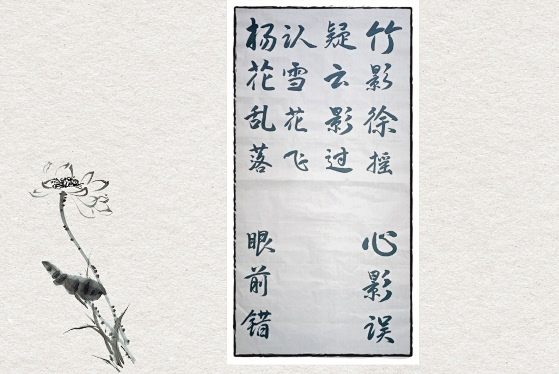 竹影徐摇心影误
疑云影过
杨花乱落眼前错
认雪花飞